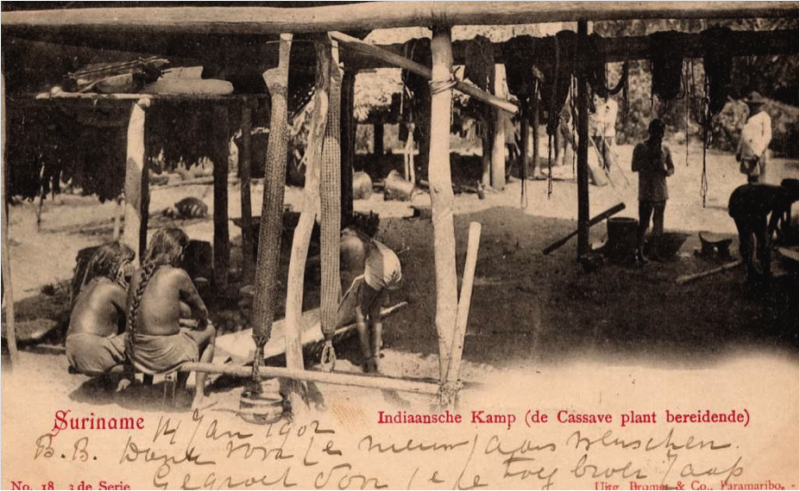 Suriname
Indiaansche Kamp (de Cassave plant bereidende)
14 Jan 1902
B.B. Dank voor de nieuwjaars wenschen.
Gegroet van je
Jaap
No. 18 3 de Serie
Uitg. Bromet & Co., Paramaribo. -